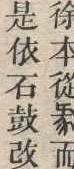 徐本從而
是依石鼓改